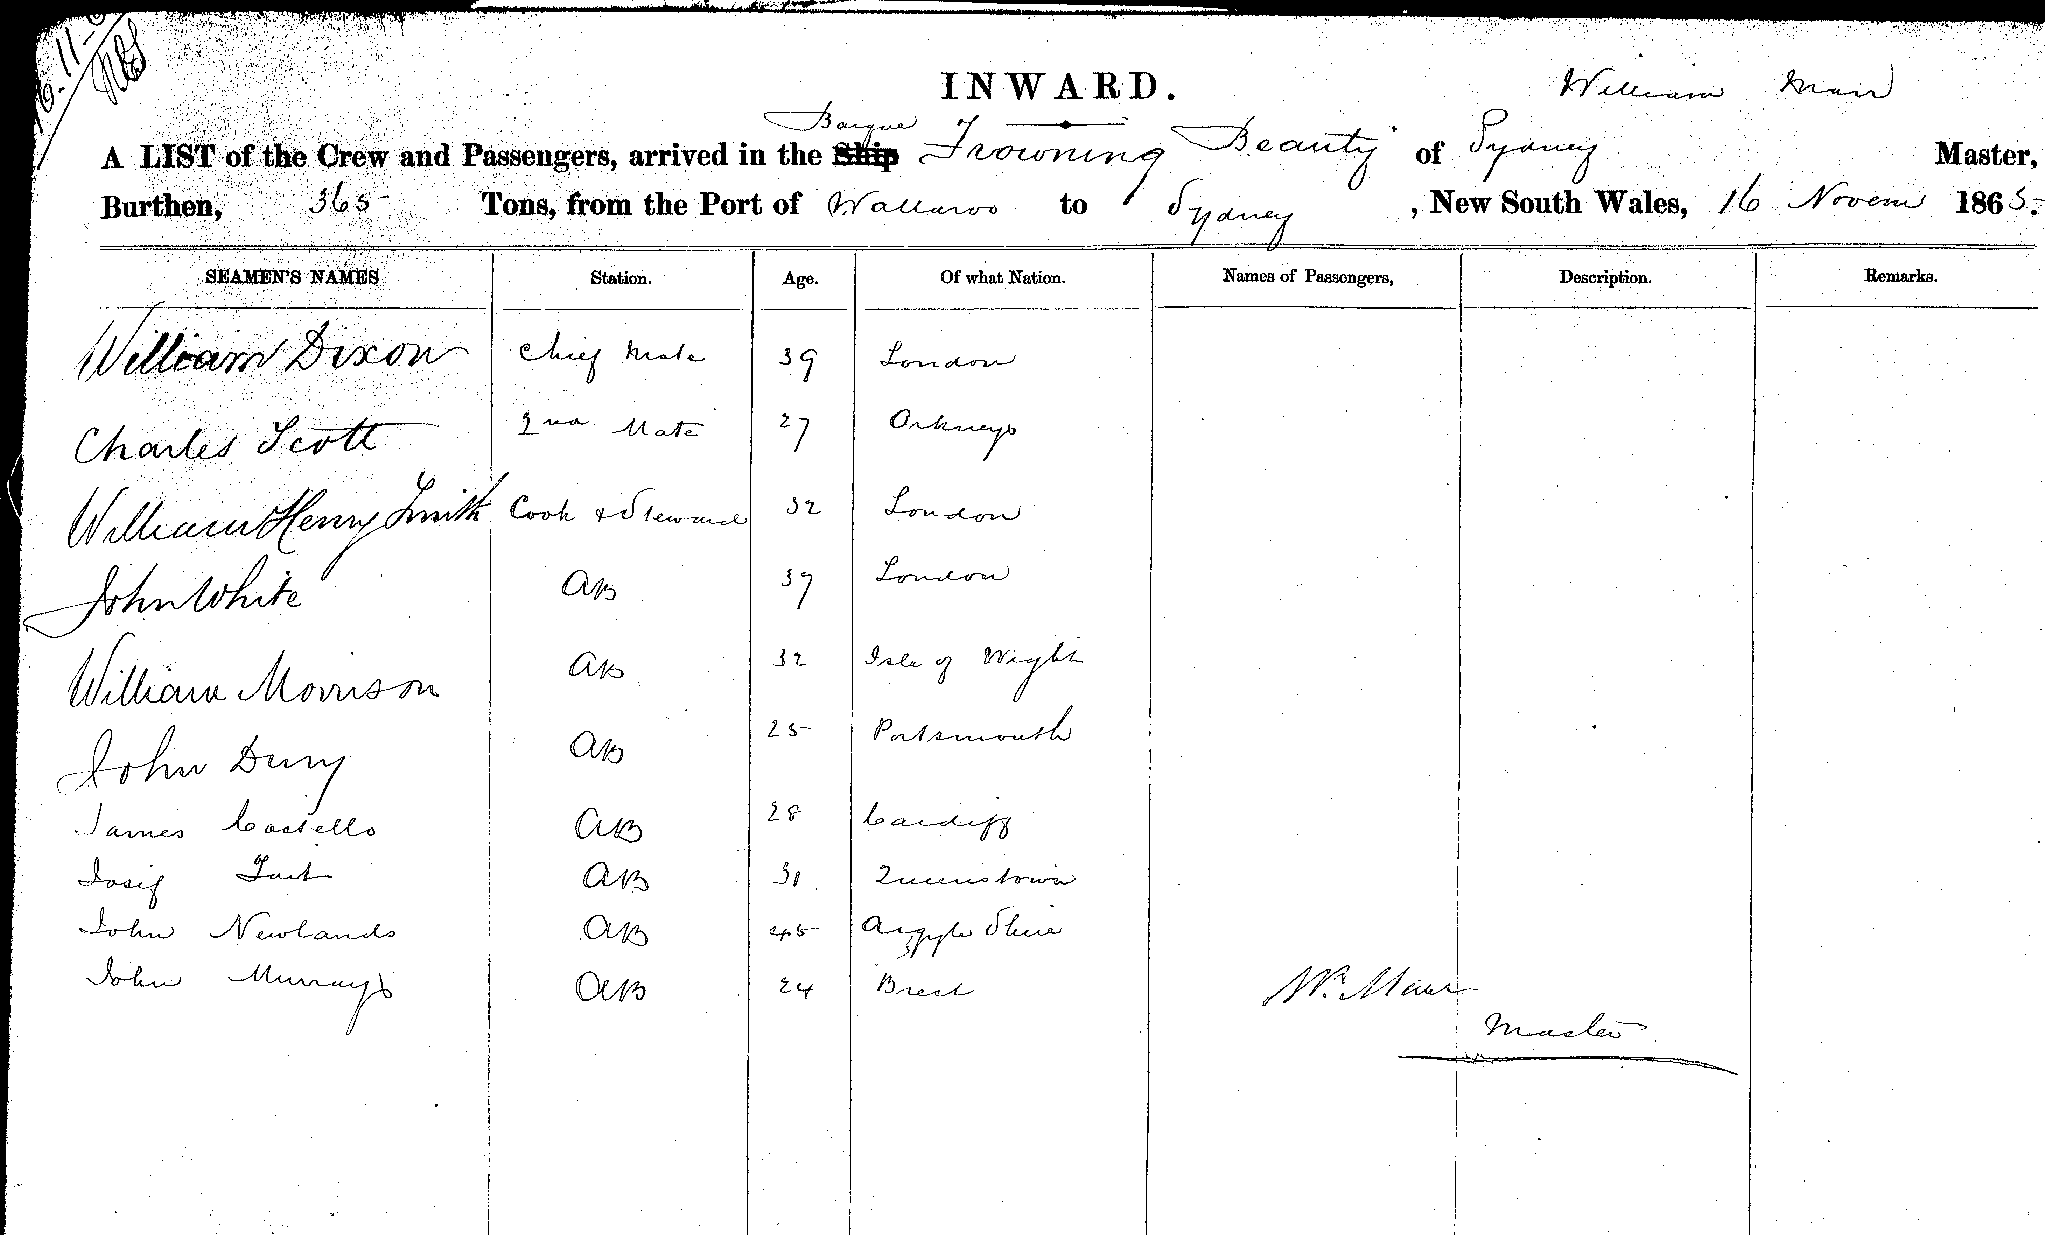 16.11
INWARD.
William Mair
Barque
A LIST of the Crew and Passengers, arrived in the Ship Frowning Beauty of Sydney Master,
Burthen, 365 Tons, from the Port of Wallaroo to Sydney, New South Wales, 16 Novem 1865.
SEAMEN'S NAMES Station. Age. Of what Nation. Names of Passengers, Description. Remarks.
William Dixon Chief Mate 39 London
Charles Scott 2nd Mate 27 Orkneys
William Henry Smith Cook & Steward 32 London
John White AB 37 London
William Morrison AB 32 Isle of Wight
John Dury AB 25 Portsmouth
James Costello AB 28 Cardiff
Josif AB 30 Queenstown
John Newlands AB 45 Argyle Shire
John Murrays AB 24 Brest
Wm. Mair
Master